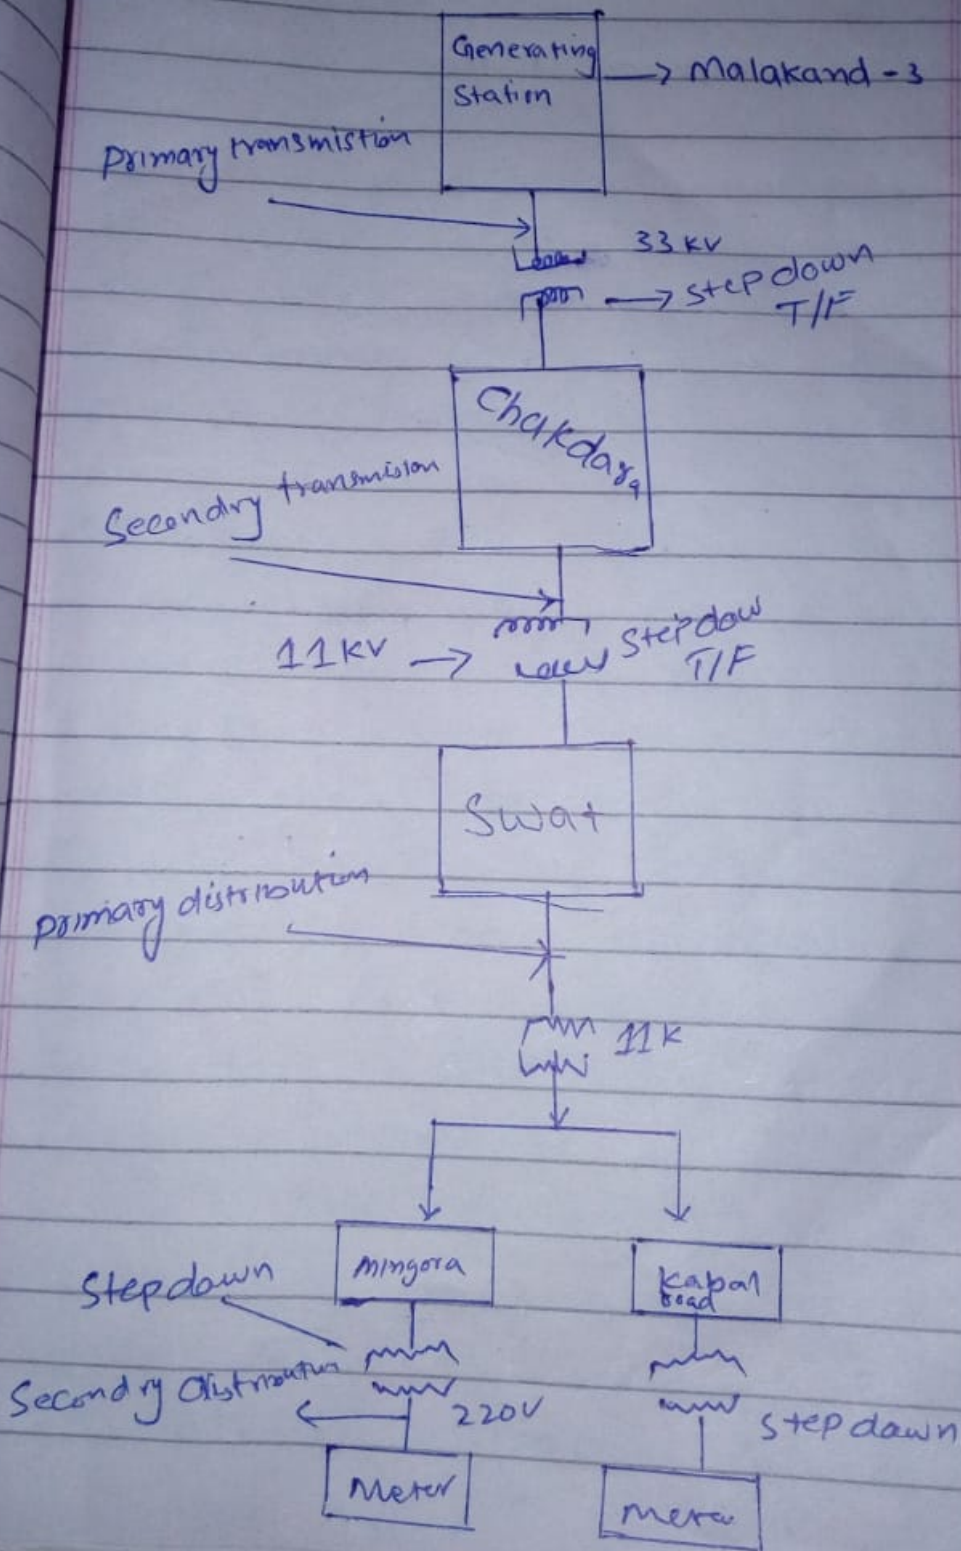 Generating
Station
→ Malakand - 3
primary transmistion
33 KV
→ step down
T/F
Chakdara
Secondry transmision
11KV →
Stepdow
T/F
Swat
primary distribution
11K
mingora
Kabal
road
Stepdown
Secondry distribution
220V
Step dawn
Meter